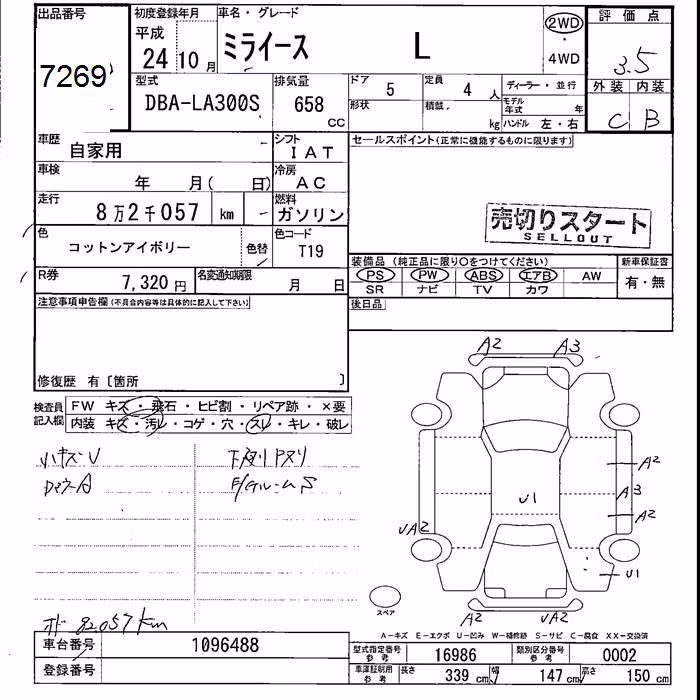 出品番号
7269
初度登録年月
平成
24 10 月
車名・グレード
ミライース L
2WD
・
4WD
評価点
3.5
外装 内装
C B
型式
DBA-LA300S
排気量
658
CC
ドア
5
定員
4 人
形状
積載
kg
ディーラー・並行
モデル
年式
年
ハンドル 左・右
車歴
自家用
シフト
IAT
車検
年 月( 日)
冷房
AC
走行
8万2千057 km
燃料
ガソリン
色
コットンアイボリー
色替
色コード
T19
R券
7,320 円
名変通知期限
月 日
セールスポイント(正常に機能するものに限ります)
売切りスタート
SELLOUT
装備品(純正品に限り○をつけてください)
新車保証書
PS PW ABS エアB AW
SR ナビ TV カワ
有・無
後日品
注意事項申告欄(不具合内容等は具体的に記入して下さい)
修復歴 有〔箇所 〕
検査員
記入欄
FW キズ・飛石・ヒビ割・リペア跡・×要
内装 キズ・汚レ・コゲ・穴・スレ・キレ・破レ
小キズU
下廻リ
A2 A3
A2
A3
A2
U1
UA2
U1
A2 UA2
スペア
82.057km
A-キズ E-エクボ U-凹み W-補修跡 S-サビ C-腐食 XX-交換済
車台番号
1096488
登録番号
型式指定番号
参考
16986
類別区分番号
参考
0002
車庫証明用
参考
長さ 339 cm 幅 147 cm 高さ 150 cm